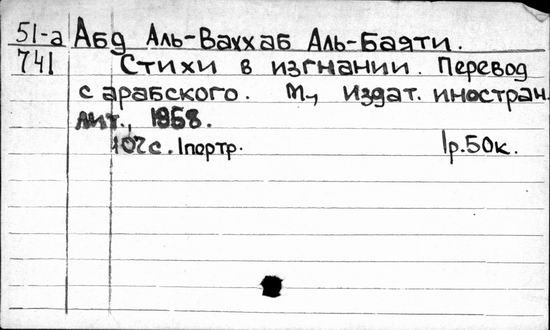 51-а Абд Аль-Ваххаб Аль-Баяти.
741 Стихи в изгнании. Перевод
с арабского. М., Издат. иностран.
лит., 1958.
107с. 1портр. 1р.50к.